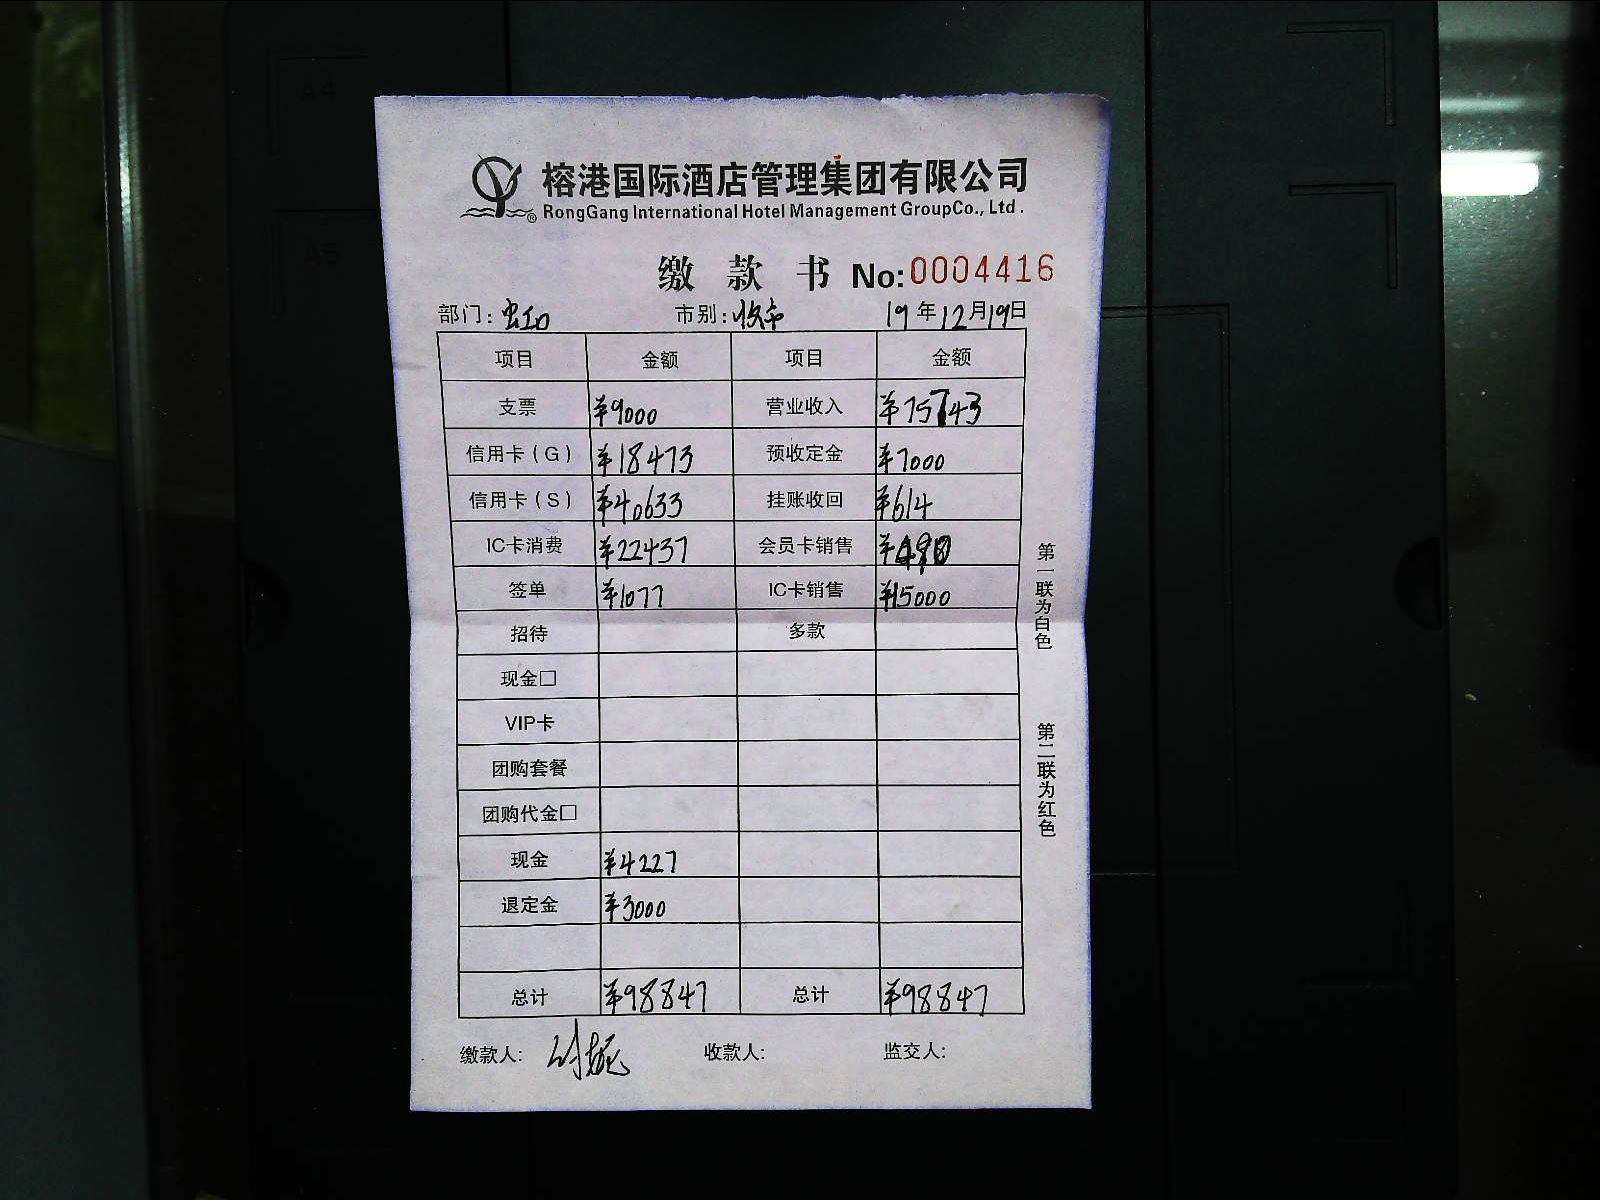 A4
A5
榕港国际酒店管理集团有限公司
® RongGang International Hotel Management GroupCo., Ltd.
缴款书 No:0004416
部门: 市别:收市 19年12月19日
项目 金额 项目 金额
支票 ¥9000 营业收入 ¥75743
信用卡(G) ¥18473 预收定金 ¥7000
信用卡(S) ¥40633 挂账收回 ¥614
IC卡消费 ¥22437 会员卡销售 ¥490
签单 ¥1077 IC卡销售 ¥15000
招待 多款
现金□
VIP卡
团购套餐
团购代金□
现金 ¥4227
退定金 ¥3000
总计 ¥98847 总计 ¥98847
缴款人: 收款人: 监交人:
第一联为白色
第二联为红色